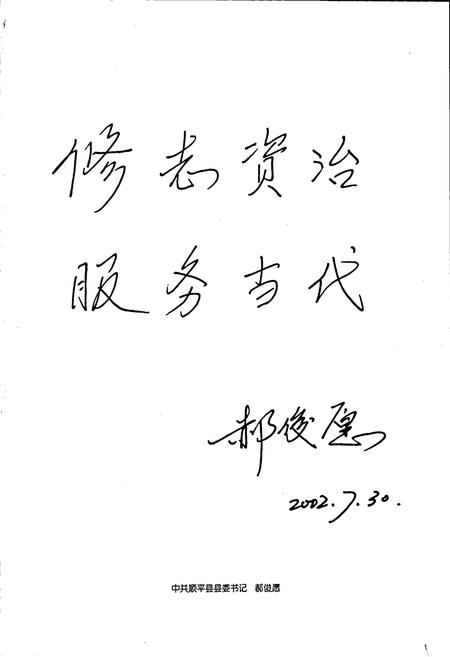 修志资治
服务当代
郝俊愿
2002.7.30.
中共顺平县县委书记 郝俊愿